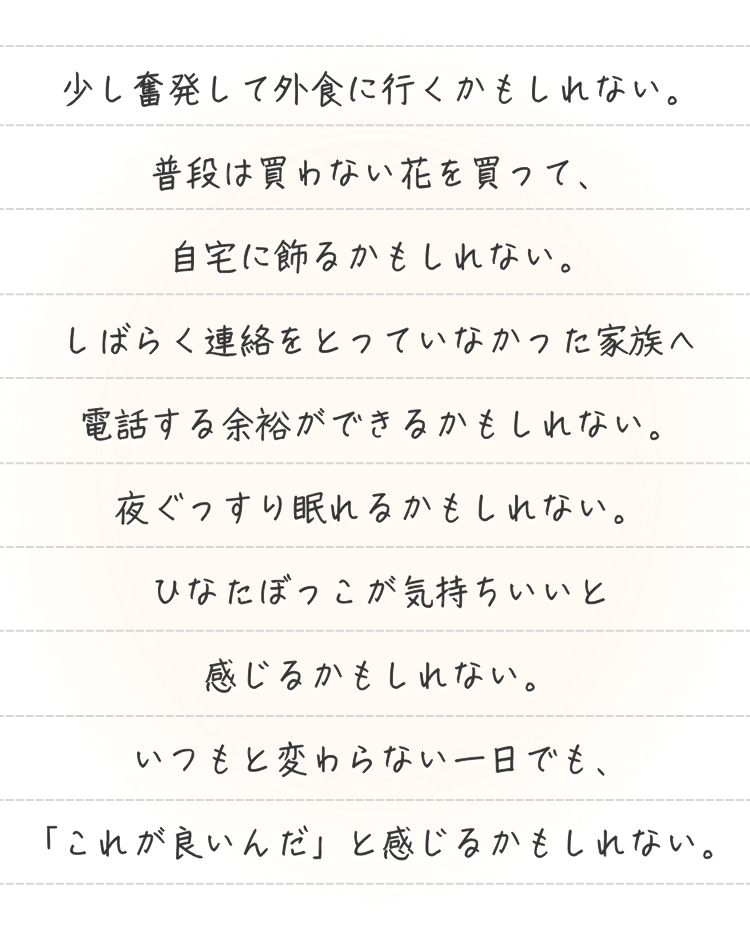 少し奮発して外食に行くかもしれない。
普段は買わない花を買って、
自宅に飾るかもしれない。
しばらく連絡をとっていなかった家族へ
電話する余裕ができるかもしれない。
夜ぐっすり眠れるかもしれない。
ひなたぼっこが気持ちいいと
感じるかもしれない。
いつもと変わらない一日でも、
「これが良いんだ」と感じるかもしれない。